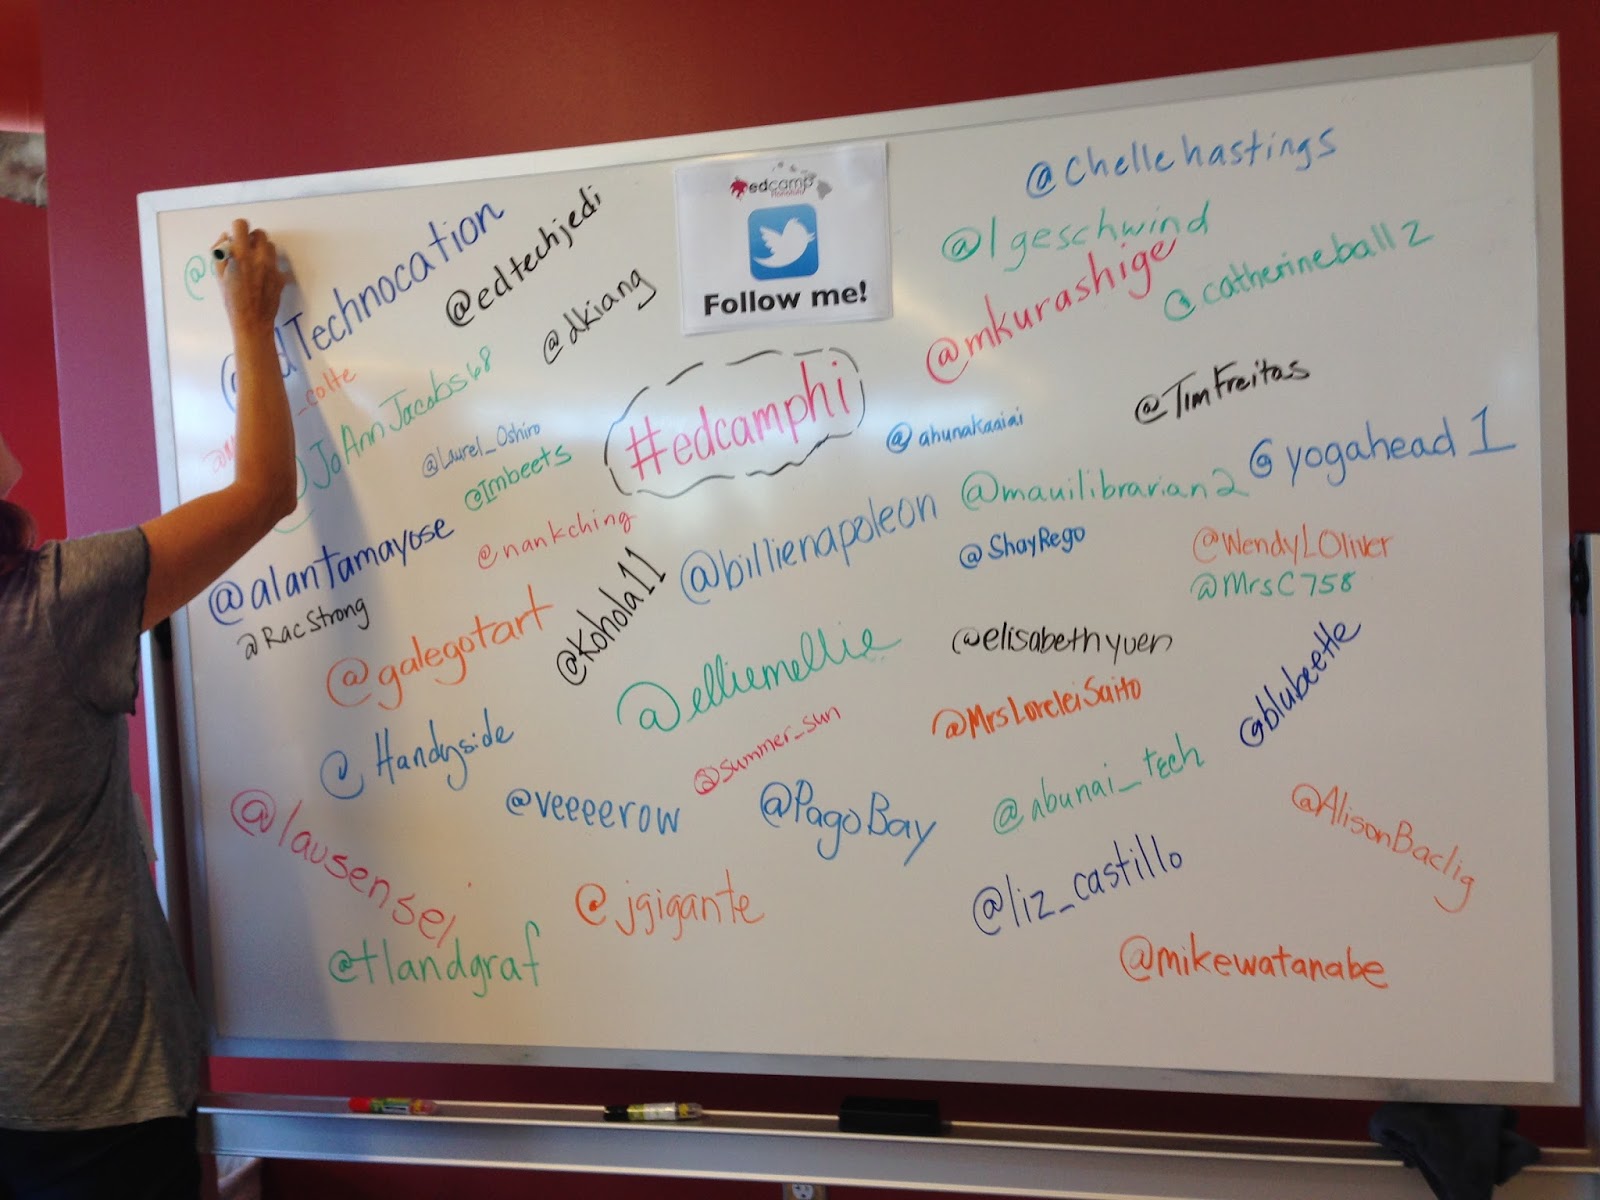 edcamp
Honolulu
Follow me!
#edcamphi
@edTechnocation
@edtechjedi
@dkiang
_colte
@JoAnnJacobs68
@Laurel_Oshiro
@Imbeets
@nankching
@alantamayose
@RacStrong
@galegotart
@Kohola11
@Handyside
@lausensei
@tlandgraf
@veeeerow
@jgigante
@chellehastings
@lgeschwind
@mkurashige
@catherineball2
@TimFreitas
@ahunakaaiai
@mauilibrarian2
@yogahead1
@billienapoleon
@ShayRego
@WendyLOliver
@MrsC758
@elliemellie
@elisabethyuen
@blubeette
@summer_sun
@MrsLoreleiSaito
@PagoBay
@abunai_tech
@AlisonBaclig
@liz_castillo
@mikewatanabe